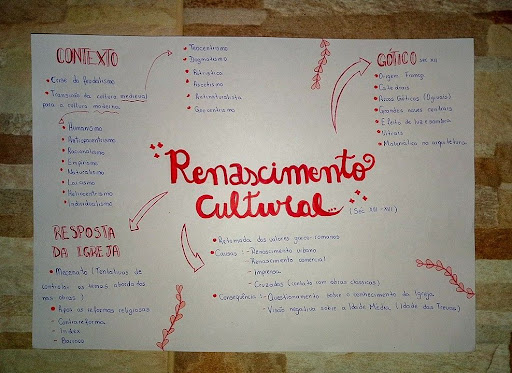 CONTEXTO
• Crise do feudalismo
• Transição da cultura medieval
para a cultura moderna
• Humanismo
• Antropocentrismo
• Racionalismo
• Empirismo
• Naturalismo
• Laicismo
• Heliocentrismo
• Individualismo
• Teocentrismo
• Dogmatismo
• Ascetismo
• Antinaturalista
• Geocentrismo
GÓTICO séc XII
• Origem França
• Catedrais
• Arcos Góticos (Ogivais)
• Grandes naves centrais
• Efeito de luz e sombra
• Vitrais
• Matemática na arquitetura
Renascimento
Cultural...
(Séc XIII - XVII)
RESPOSTA
DA IGREJA
• Mecenato (Tentativas de
controlar os temas abordados
nas obras)
• Após as reformas religiosas
- Contrarreforma
- Index
- Barroco
• Retomada dos valores greco-romanos
• Causas: - Renascimento urbano
- Renascimento comercial
- Imprensa
- Cruzadas (contato com obras clássicas)
• Consequência: - Questionamento sobre o conhecimento da Igreja
- Visão negativa sobre a Idade Média (Idade das Trevas)